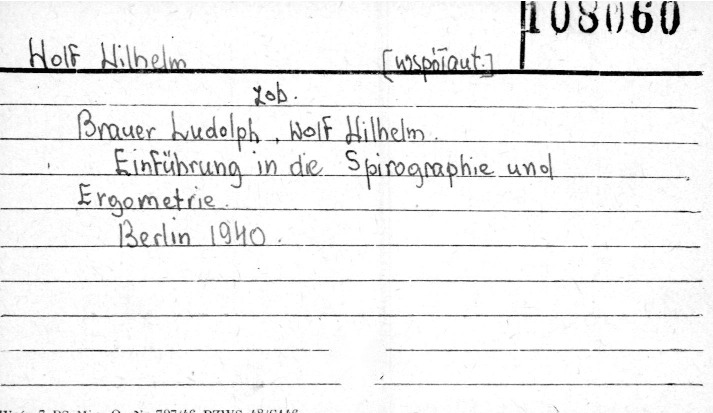 108060
Wolf Wilhelm [współaut.]
zob.
Brauer Ludolph, Wolf Wilhelm.
Einführung in die Spirographie und
Ergometrie.
Berlin 1940.